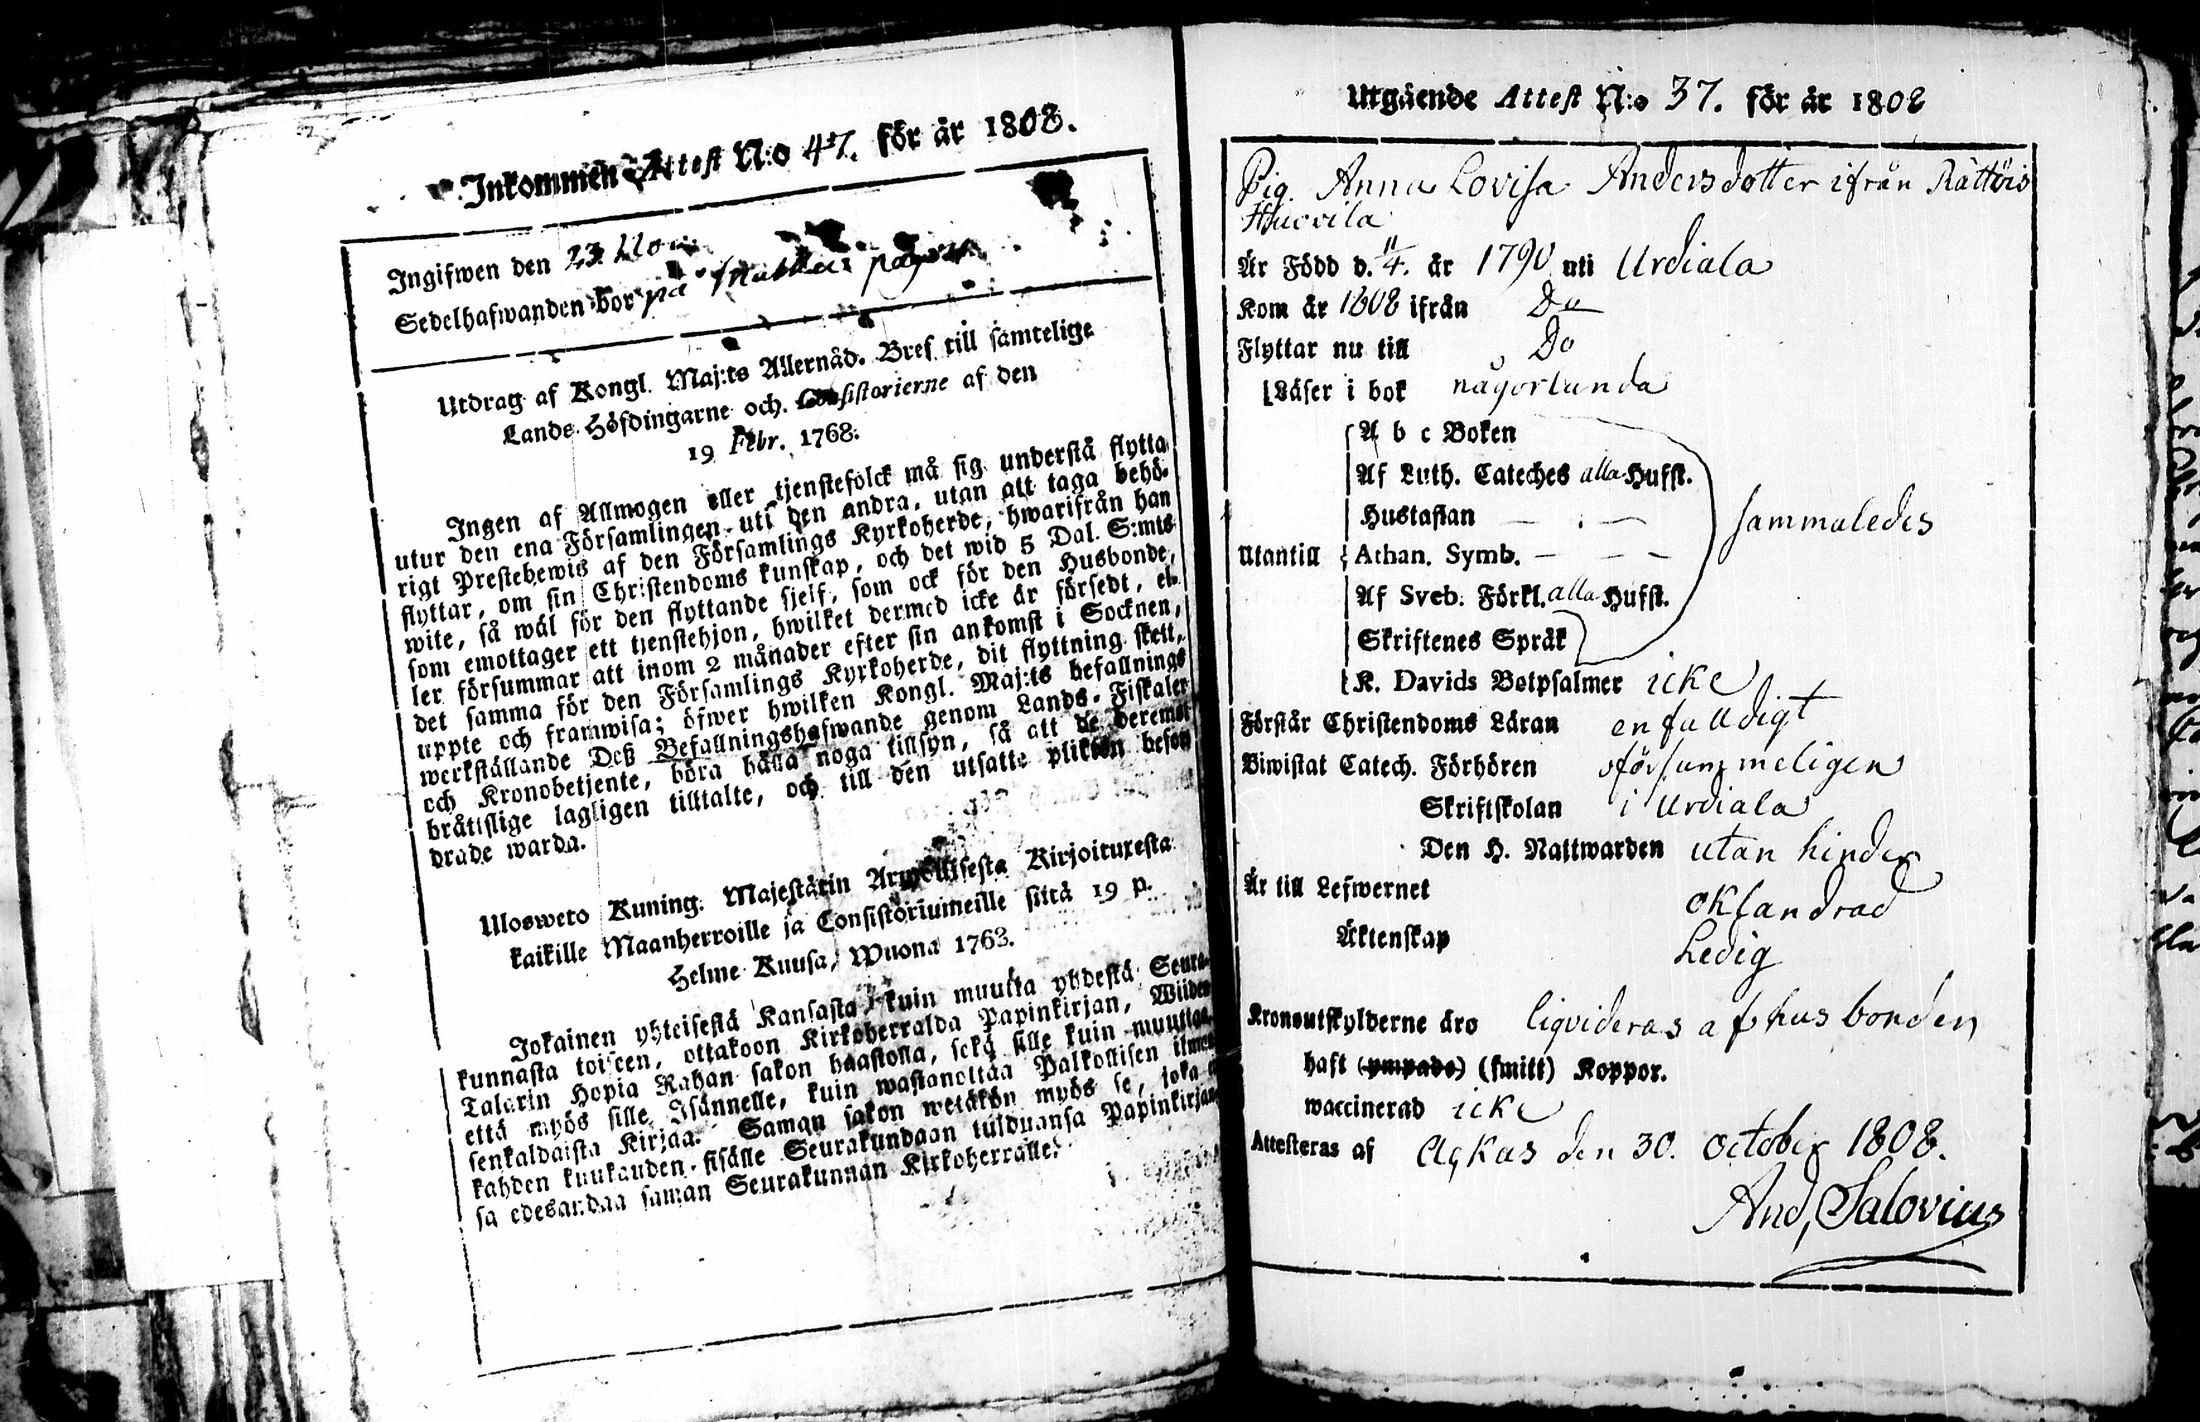 Inkommen Attest N:o 47. för år 1808.
Ingifwen den 23
Sedelhafwanden bor på
Utdrag af Kongl. Maj:ts Allernåd. Bref till samtelige
Lands-Höfdingarne och Consistorierne af den
19 Febr. 1768.
Ingen af Allmogen eller tjenstefolck må sig understå flytta
utur den ena Församlingen uti den andra, utan att taga behö-
rigt Prestebewis af den Församlings Kyrkoherde, hwarifrån han
flyttar, om sin Christendoms kunskap, och det wid 5 Dal. S:mts
wite, så wäl för den flyttande sjelf, som ock för den Husbonde,
som emottager ett tjenstehjon, hwilket dermed icke är försedt, el-
ler försummar att inom 2 månader efter sin ankomst i Socknen,
det samma för den Församlings Kyrkoherde, dit flyttning skett,
uppte och framwisa; öfwer hwilken Kongl. Maj:ts befallnings
werkställande Deß Befallningshafwande genom Lands-Fiskaler
och Kronobetjente, böra hålla noga tillsyn, så att de deremot
bråttslige lagligen tilltalte, och till den utsatte plikten befor-
drade warda.
Ulosweto Kuning. Majestätin Armollisesta Kirjoituxesta
kaikille Maanherroille ja Consistoriumeille siitä 19 p.
Helme Kuusa, Wuona 1763.
Jokainen yhteisestä Kansasta kuin muutta yhdestä Seura-
kunnasta toiseen, ottakoon Kirkoherralda Papinkirjan, Wiiden
Talarin Hopia Rahan sakon haastolla, sekä sille kuin muuttaa,
että myös sille Isännelle, kuin wastanottaa Palkollisen ilman
senkaldaista Kirjaa. Saman sakon wetäkön myös se, joka ei
kahden kuukauden sisälle Seurakundaan tulduansa Papinkirjan-
sa edesandaa saman Seurakunnan Kirkoherralle.
Utgående Attest N:o 37. för år 1808
Pig. Anna Lovisa Andersdotter ifrån Rättöis
Huovila
Är Född d. 11/4. år 1790 uti Urdiala
Kom år 1808 ifrån Do
Flyttar nu till Do
Läser i bok någorlunda
A b c Boken
Af Luth. Cateches alla Hufst.
Hustaflan — . —
Utantill Athan. Symb. — — —
sammaledes
Af Sveb. Förkl. alla Hufst.
Skriftenes Språk
K. Davids Botpsalmer icke
Förstår Christendoms Läran enfalldigt
Biwistat Catech. Förhören oförsummeligen
Skriftskolan i Urdiala
Den H. Nattwarden utan hinder
Är till Lefwernet oklandrad
Äktenskap Ledig
Kronoutskylderne äro liqvideras af husbonden
haft (ympade) (smitt) Koppor.
waccinerad icke
Attesteras af Ackas den 30. October 1808.
And. Salovius